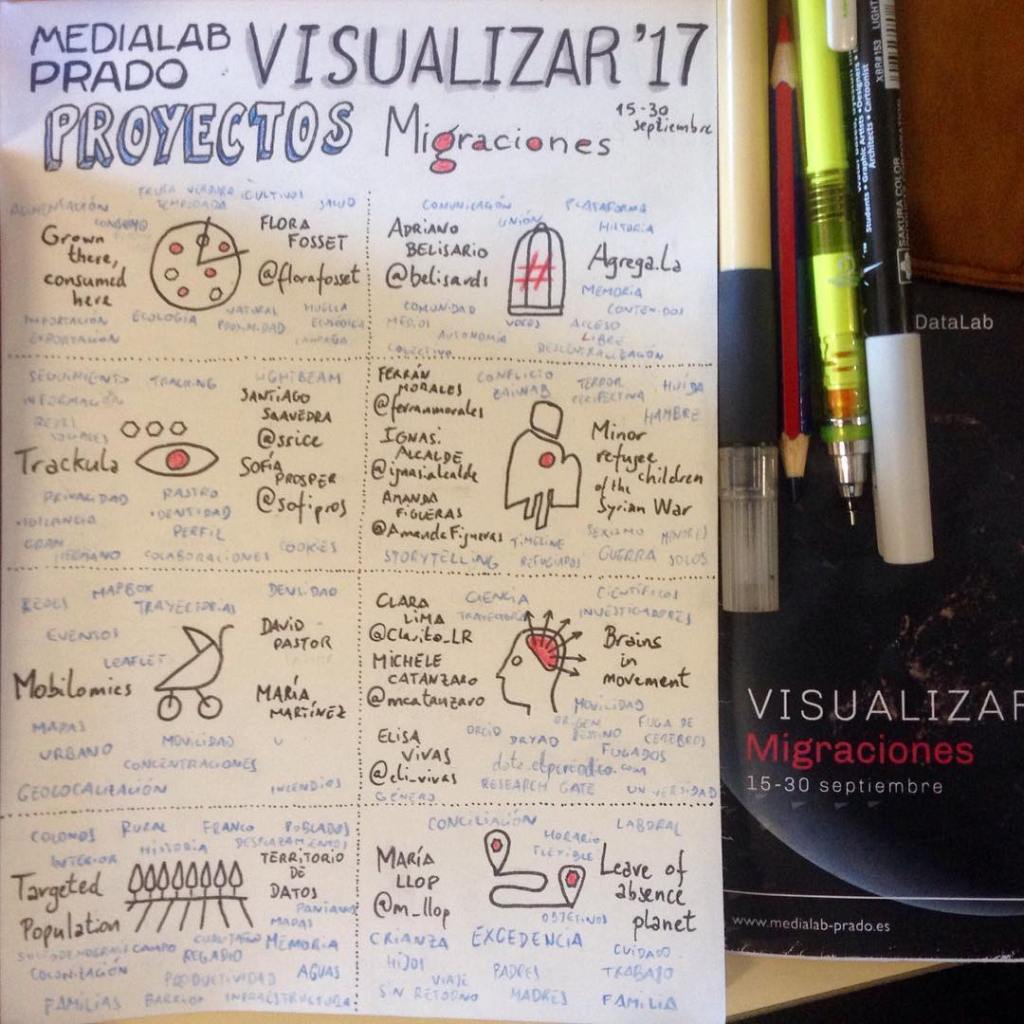 MEDIALAB
PRADO
VISUALIZAR '17
PROYECTOS
Migraciones
15-30
septiembre
FRUTA VERDURA CULTIVOS
ALIMENTACIÓN
TEMPORADA
SALUD
CONSUMO
Grown
there,
consumed
here
FLORA
FOSSET
@florafosset
IMPORTACIÓN
ECOLOGÍA
NATURAL
HUELLA
ECOLÓGICA
PROXIMIDAD
EXPORTACIÓN
COMUNICACIÓN
PLATAFORMA
UNIÓN
HISTORIA
ADRIANO
BELISARIO
@belisards
#
Agrega.La
MEMORIA
COMUNIDAD
CONTENIDOS
MEDIOS
VOCES
ACCESO
LIBRE
AUTONOMÍA
COLECTIVO
DESCENTRALIZACIÓN
SEGUIMIENTO
TRACKING
LIGHTBEAM
INFORMACIÓN
REDES
SOCIALES
Trackula
SANTIAGO
SAAVEDRA
@ssice
SOFÍA
PROSPER
@sofipros
PRIVACIDAD
RASTRO
VIGILANCIA
IDENTIDAD
GRAN
HERMANO
PERFIL
COLABORACIONES
COOKIES
FERRÁN
MORALES
@ferranmorales
IGNASI
ALCALDE
@ignasialcalde
AMANDA
FIGUERAS
@AmandaFigueras
CONFLICTO
ZAINAB
TERROR
PERSPECTIVA
HUIDA
HAMBRE
Minor
refugee
children
of the
Syrian War
STORYTELLING
TIMELINE
REFUGIADOS
SEXISMO
MENORES
GUERRA
SOLOS
REDES
MAPBOX
TRAYECTORIAS
DENSIDAD
EVENTOS
LEAFLET
Mobilomics
DAVID
PASTOR
MARÍA
MARTÍNEZ
MAPAS
URBANO
MOVILIDAD
CONCENTRACIONES
GEOLOCALIZACIÓN
INCENDIOS
CLARA
LIMA
@Clarito_LR
MICHELE
CATANZARO
@mcatanzaro
ELISA
VIVAS
@eli_vivas
GÉNERO
CIENCIA
TRAYECTORIA
CIENTÍFICOS
INVESTIGADORES
Brains
in
movement
MOVILIDAD
ORCID
DRYAD
ORIGEN
DESTINO
FUGA DE
CEREBROS
FUGADOS
data.elperiodico.com
RESEARCH GATE
UNIVERSIDAD
COLONOS
RURAL
FRANCO
POBLADOS
INTERIOR
HISTORIA
DESPLAZAMIENTOS
Targeted
Population
TERRITORIO
DE
DATOS
PANTANOS
MAPAS
SOCIODEMOGRAFÍA
CAMPO
REGADÍO
MEMORIA
COLONIZACIÓN
PRODUCTIVIDAD
AGUAS
FAMILIAS
BARRIOS
INFRAESTRUCTURAS
CONCILIACIÓN
HORARIO
FLEXIBLE
LABORAL
MARÍA
LLOP
@m_llop
Leave of
absence
planet
OBJETIVOS
CRIANZA
EXCEDENCIA
CUIDADO
HIJOS
VIAJE
PADRES
TRABAJO
SIN RETORNO
MADRES
FAMILIA
Students • Graphic Artists • Designers •
Architects • Cartoonist
XBR#153
LIGHT
SAKURA COLOR
DataLab
VISUALIZAR
Migraciones
15-30 septiembre
www.medialab-prado.es